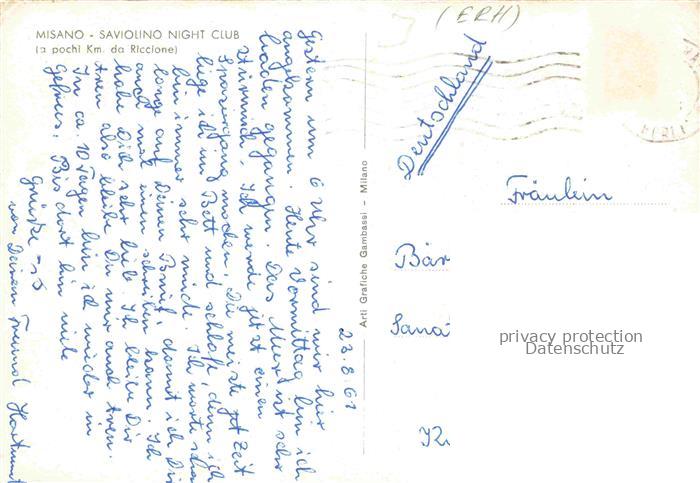 MISANO - SAVIOLINO NIGHT CLUB
(a pochi Km. da Riccione)
(ERH)
Deutschland
Fräulein
Bär
Sana
Kr
privacy protection
Datenschutz
Arti Grafiche Gambassi - Milano
23.8.61
Gestern um 6 Uhr sind wir hier
angekommen. Heute Vormittag bin ich
baden gegangen. Das Meer ist sehr
stürmisch. Ich werde jetzt einen
Spaziergang machen. Die meiste Zeit
liege ich im Bett und schlafe, denn ich
bin immer sehr müde. Ich warte schon
lange auf Deinen Brief, damit ich Dir
auch mal einen schreiben kann. Ich
habe Dich sehr lieb. Ich bleibe Dir
treu also bleibe Du mir auch treu.
In ca. 10 Tagen bin ich wieder in
Bis dort hin viele
Grüsse
von Deinem Freund Hartmut